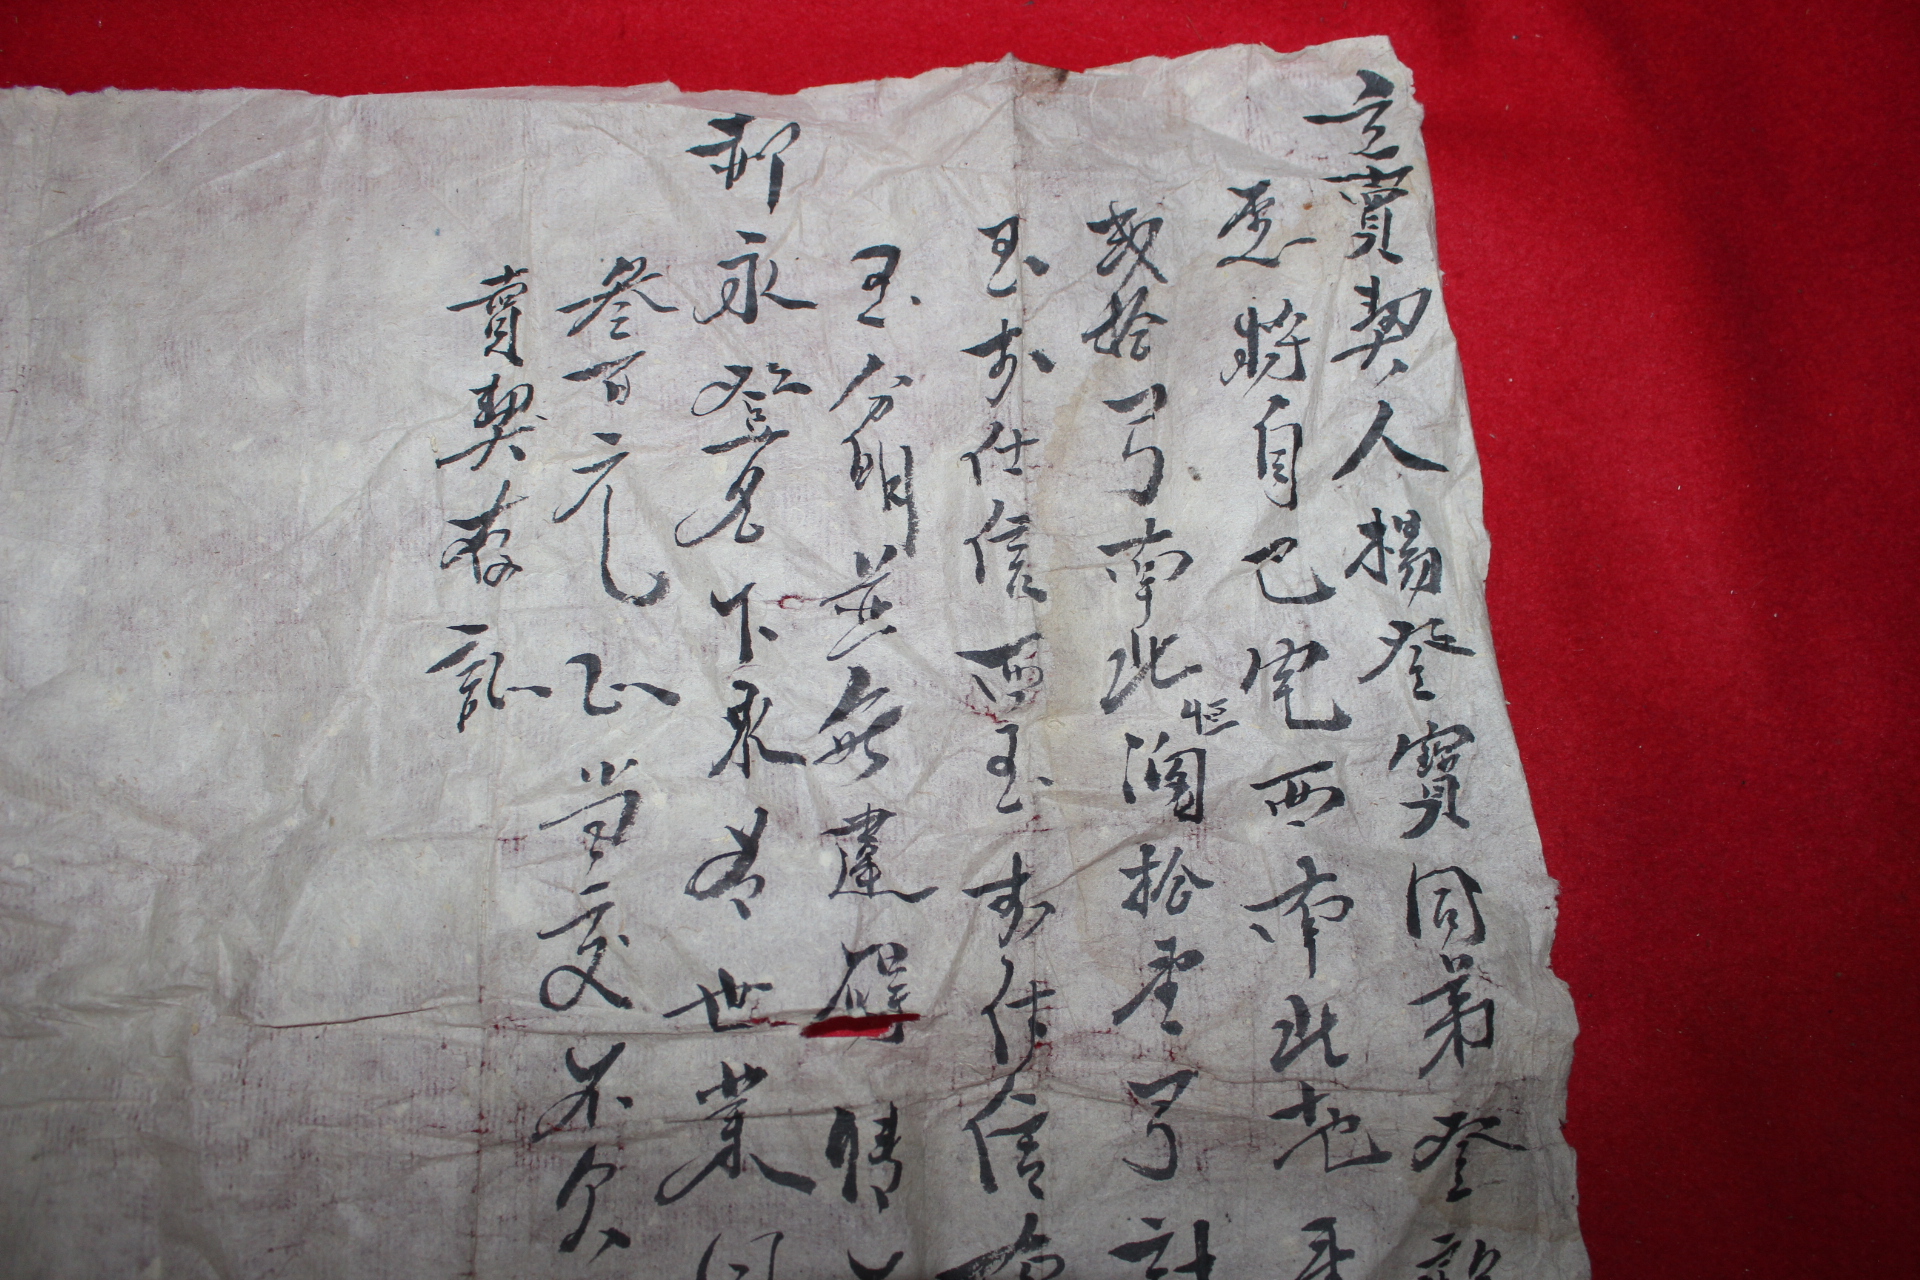 立賣契人楊登寶同弟登
愿將自己宅西南北地
貳拾弓南北恒濶拾壹弓計
至步仕信西至步仕信
至分明並無違碍情
郝永登名下永為世業同
叁百元正當交不欠
賣契存証